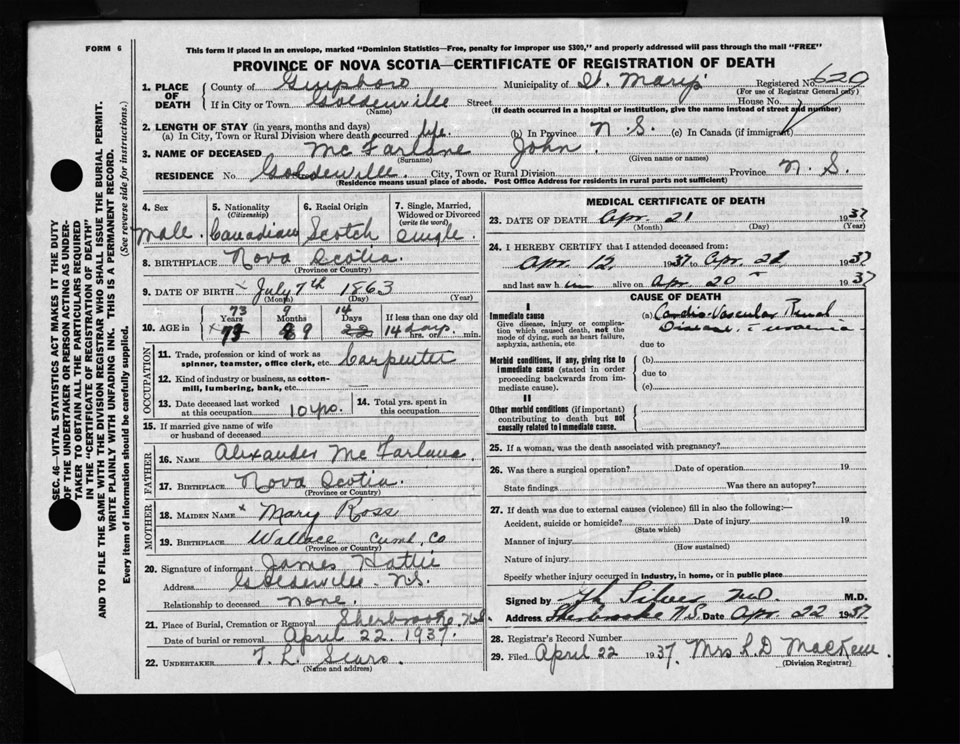 FORM 6
This form if placed in an envelope, marked "Dominion Statistics—Free, penalty for improper use $300," and properly addressed will pass through the mail "FREE"
PROVINCE OF NOVA SCOTIA—CERTIFICATE OF REGISTRATION OF DEATH
SEC. 46—VITAL STATISTICS ACT MAKES IT THE DUTY
OF THE UNDERTAKER OR PERSON ACTING AS UNDER-
TAKER TO OBTAIN ALL THE PARTICULARS REQUIRED
IN THE "CERTIFICATE OF REGISTRATION OF DEATH"
AND TO FILE THE SAME WITH THE DIVISION REGISTRAR WHO SHALL ISSUE THE BURIAL PERMIT.
WRITE PLAINLY WITH UNFADING INK. THIS IS A PERMANENT RECORD.
Every item of information should be carefully supplied. (See reverse side for instructions.)
1. PLACE OF DEATH County of Guysboro Municipality of St. Mary's Registered No. 620
(For use of Registrar General only)
If in City or Town Goldenville Street House No.
(Name) (If death occurred in a hospital or institution, give the name instead of street and number)
2. LENGTH OF STAY (in years, months and days)
(a) In City, Town or Rural Division where death occurred life. (b) In Province N. S. (c) In Canada (if immigrant)
3. NAME OF DECEASED McFarlane John.
(Surname) (Given name or names)
RESIDENCE No. Goldenville. City, Town or Rural Division Province N. S.
(Residence means usual place of abode. Post Office Address for residents in rural parts not sufficient)
4. Sex 5. Nationality (Citizenship) 6. Racial Origin 7. Single, Married, Widowed or Divorced (write the word)
Male. Canadian Scotch Single.
8. BIRTHPLACE Nova Scotia.
(Province or Country)
9. DATE OF BIRTH July 7th 1863
(Month) (Day) (Year)
73 9 14
10. AGE in Years Months Days If less than one day old
73 9 22 14 days. hrs. or min.
OCCUPATION
11. Trade, profession or kind of work as spinner, teamster, office clerk, etc. Carpenter
12. Kind of industry or business, as cotton-mill, lumbering, bank, etc.
13. Date deceased last worked at this occupation 10 yrs. 14. Total yrs. spent in this occupation
15. If married give name of wife or husband of deceased
FATHER
16. NAME Alexander McFarlane
17. BIRTHPLACE Nova Scotia.
(Province or Country)
MOTHER
18. MAIDEN NAME Mary Ross
19. BIRTHPLACE Wallace Cumb. Co
(Province or Country)
20. Signature of informant James Hattie
Address Goldenville. N.S.
Relationship to deceased none.
21. Place of Burial, Cremation or Removal Sherbrooke, N.S.
Date of burial or removal April 22. 1937.
22. UNDERTAKER T. L. Sears.
(Name and address)
MEDICAL CERTIFICATE OF DEATH
23. DATE OF DEATH Apr. 21 1937
(Month) (Day) (Year)
24. I HEREBY CERTIFY that I attended deceased from:
Apr. 12 1937 to Apr. 21 1937
and last saw him alive on Apr. 20 1937
CAUSE OF DEATH
I
Immediate cause (a) Cardio-Vascular Renal
Give disease, injury or complication which caused death, not the mode of dying, such as heart failure, asphyxia, asthenia, etc Disease uraemia
due to
Morbid conditions, if any, giving rise to immediate cause (stated in order proceeding backwards from immediate cause). (b)
due to
(c)
II
Other morbid conditions (if important) contributing to death but not causally related to immediate cause.
25. If a woman, was the death associated with pregnancy?
26. Was there a surgical operation? Date of operation 19
State findings Was there an autopsy?
27. If death was due to external causes (violence) fill in also the following:—
Accident, suicide or homicide? Date of injury 19
(State which)
Manner of injury
(How sustained)
Nature of injury
Specify whether injury occurred in industry, in home, or in public place
Signed by Silver M.D. M.D.
Address Sherbrooke N.S. Date Apr. 22 1937
28. Registrar's Record Number
29. Filed April 22 1937. Mrs L. D MacKeen.
(Division Registrar)